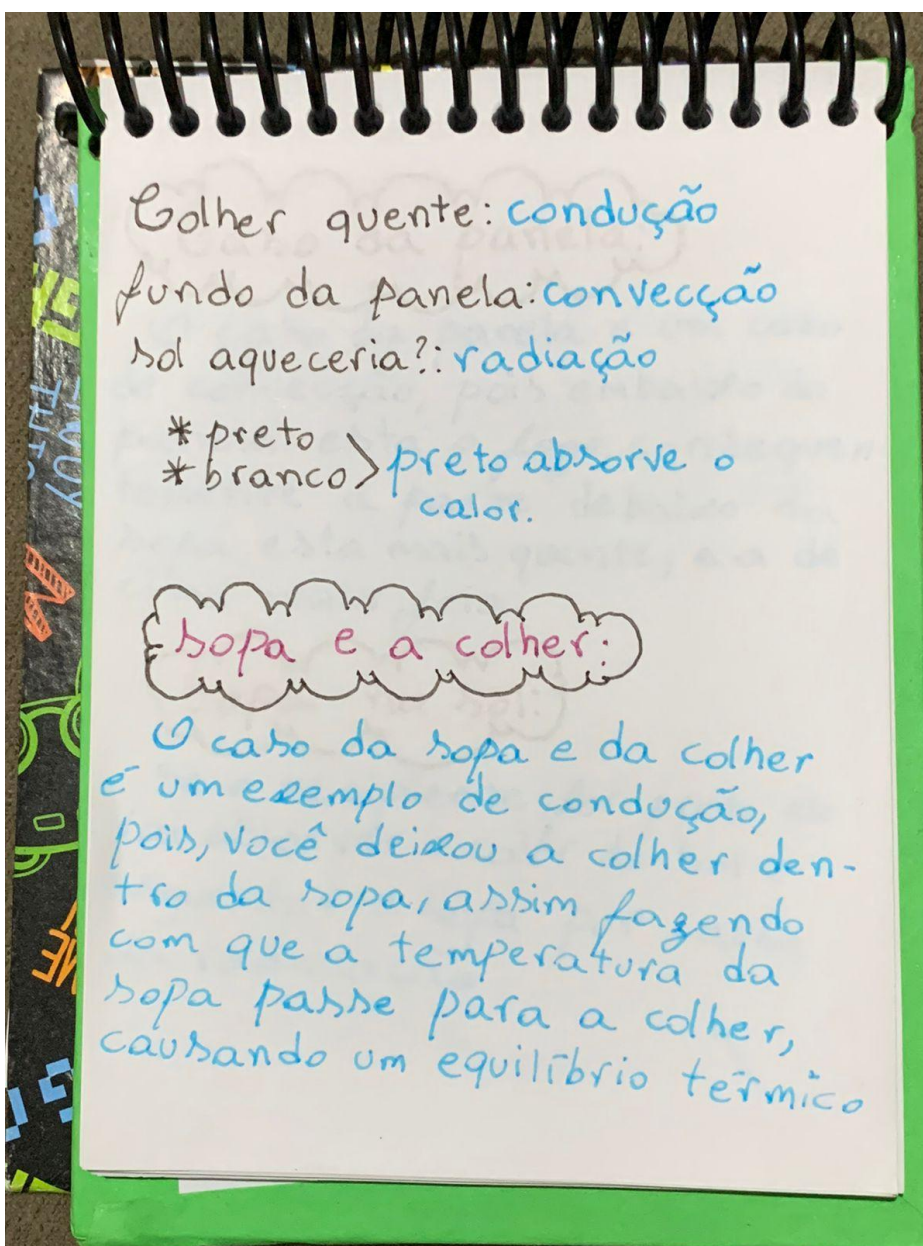 Colher quente: condução
fundo da panela: convecção
sol aqueceria?: radiação
* preto
* branco > preto absorve o
calor.
sopa e a colher:
O caso da sopa e da colher
é um exemplo de condução,
pois, você deixou a colher den-
tro da sopa, assim fazendo
com que a temperatura da
sopa passe para a colher,
causando um equilíbrio térmico